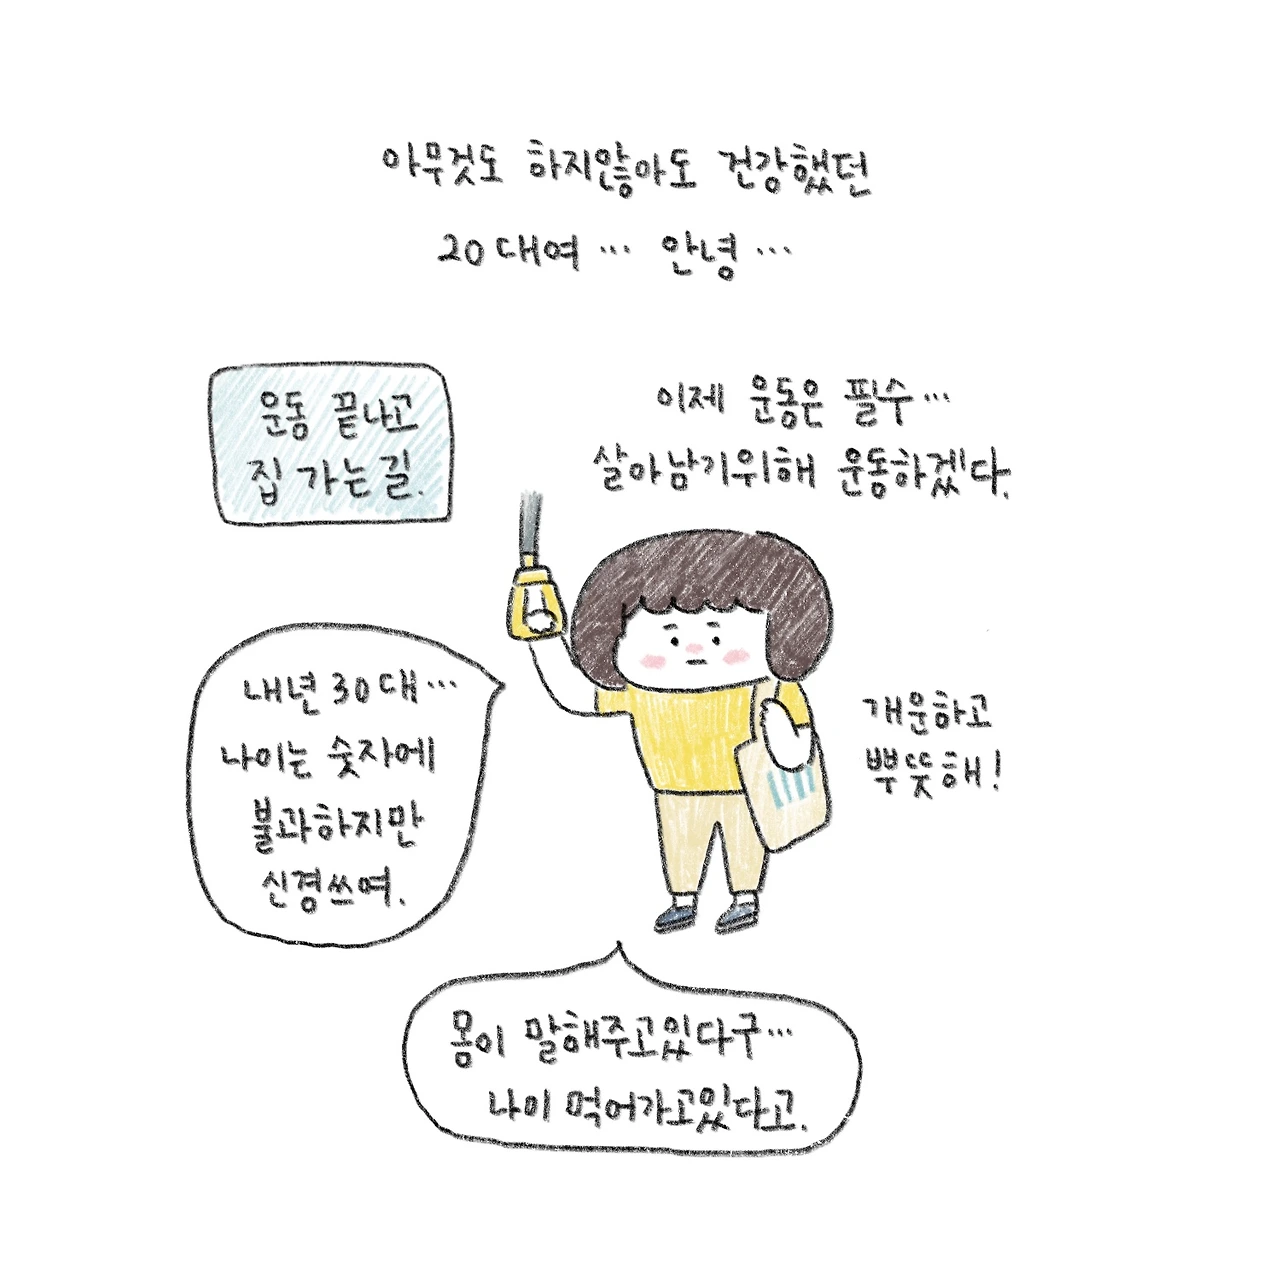 아무것도 하지않아도 건강했던
20대여 ··· 안녕 ···
운동 끝나고
집 가는길.
이제 운동은 필수···
살아남기위해 운동하겠다.
내년 30대···
나이는 숫자에
불과하지만
신경쓰여.
개운하고
뿌듯해!
몸이 말해주고있다구···
나이 먹어가고있다고.